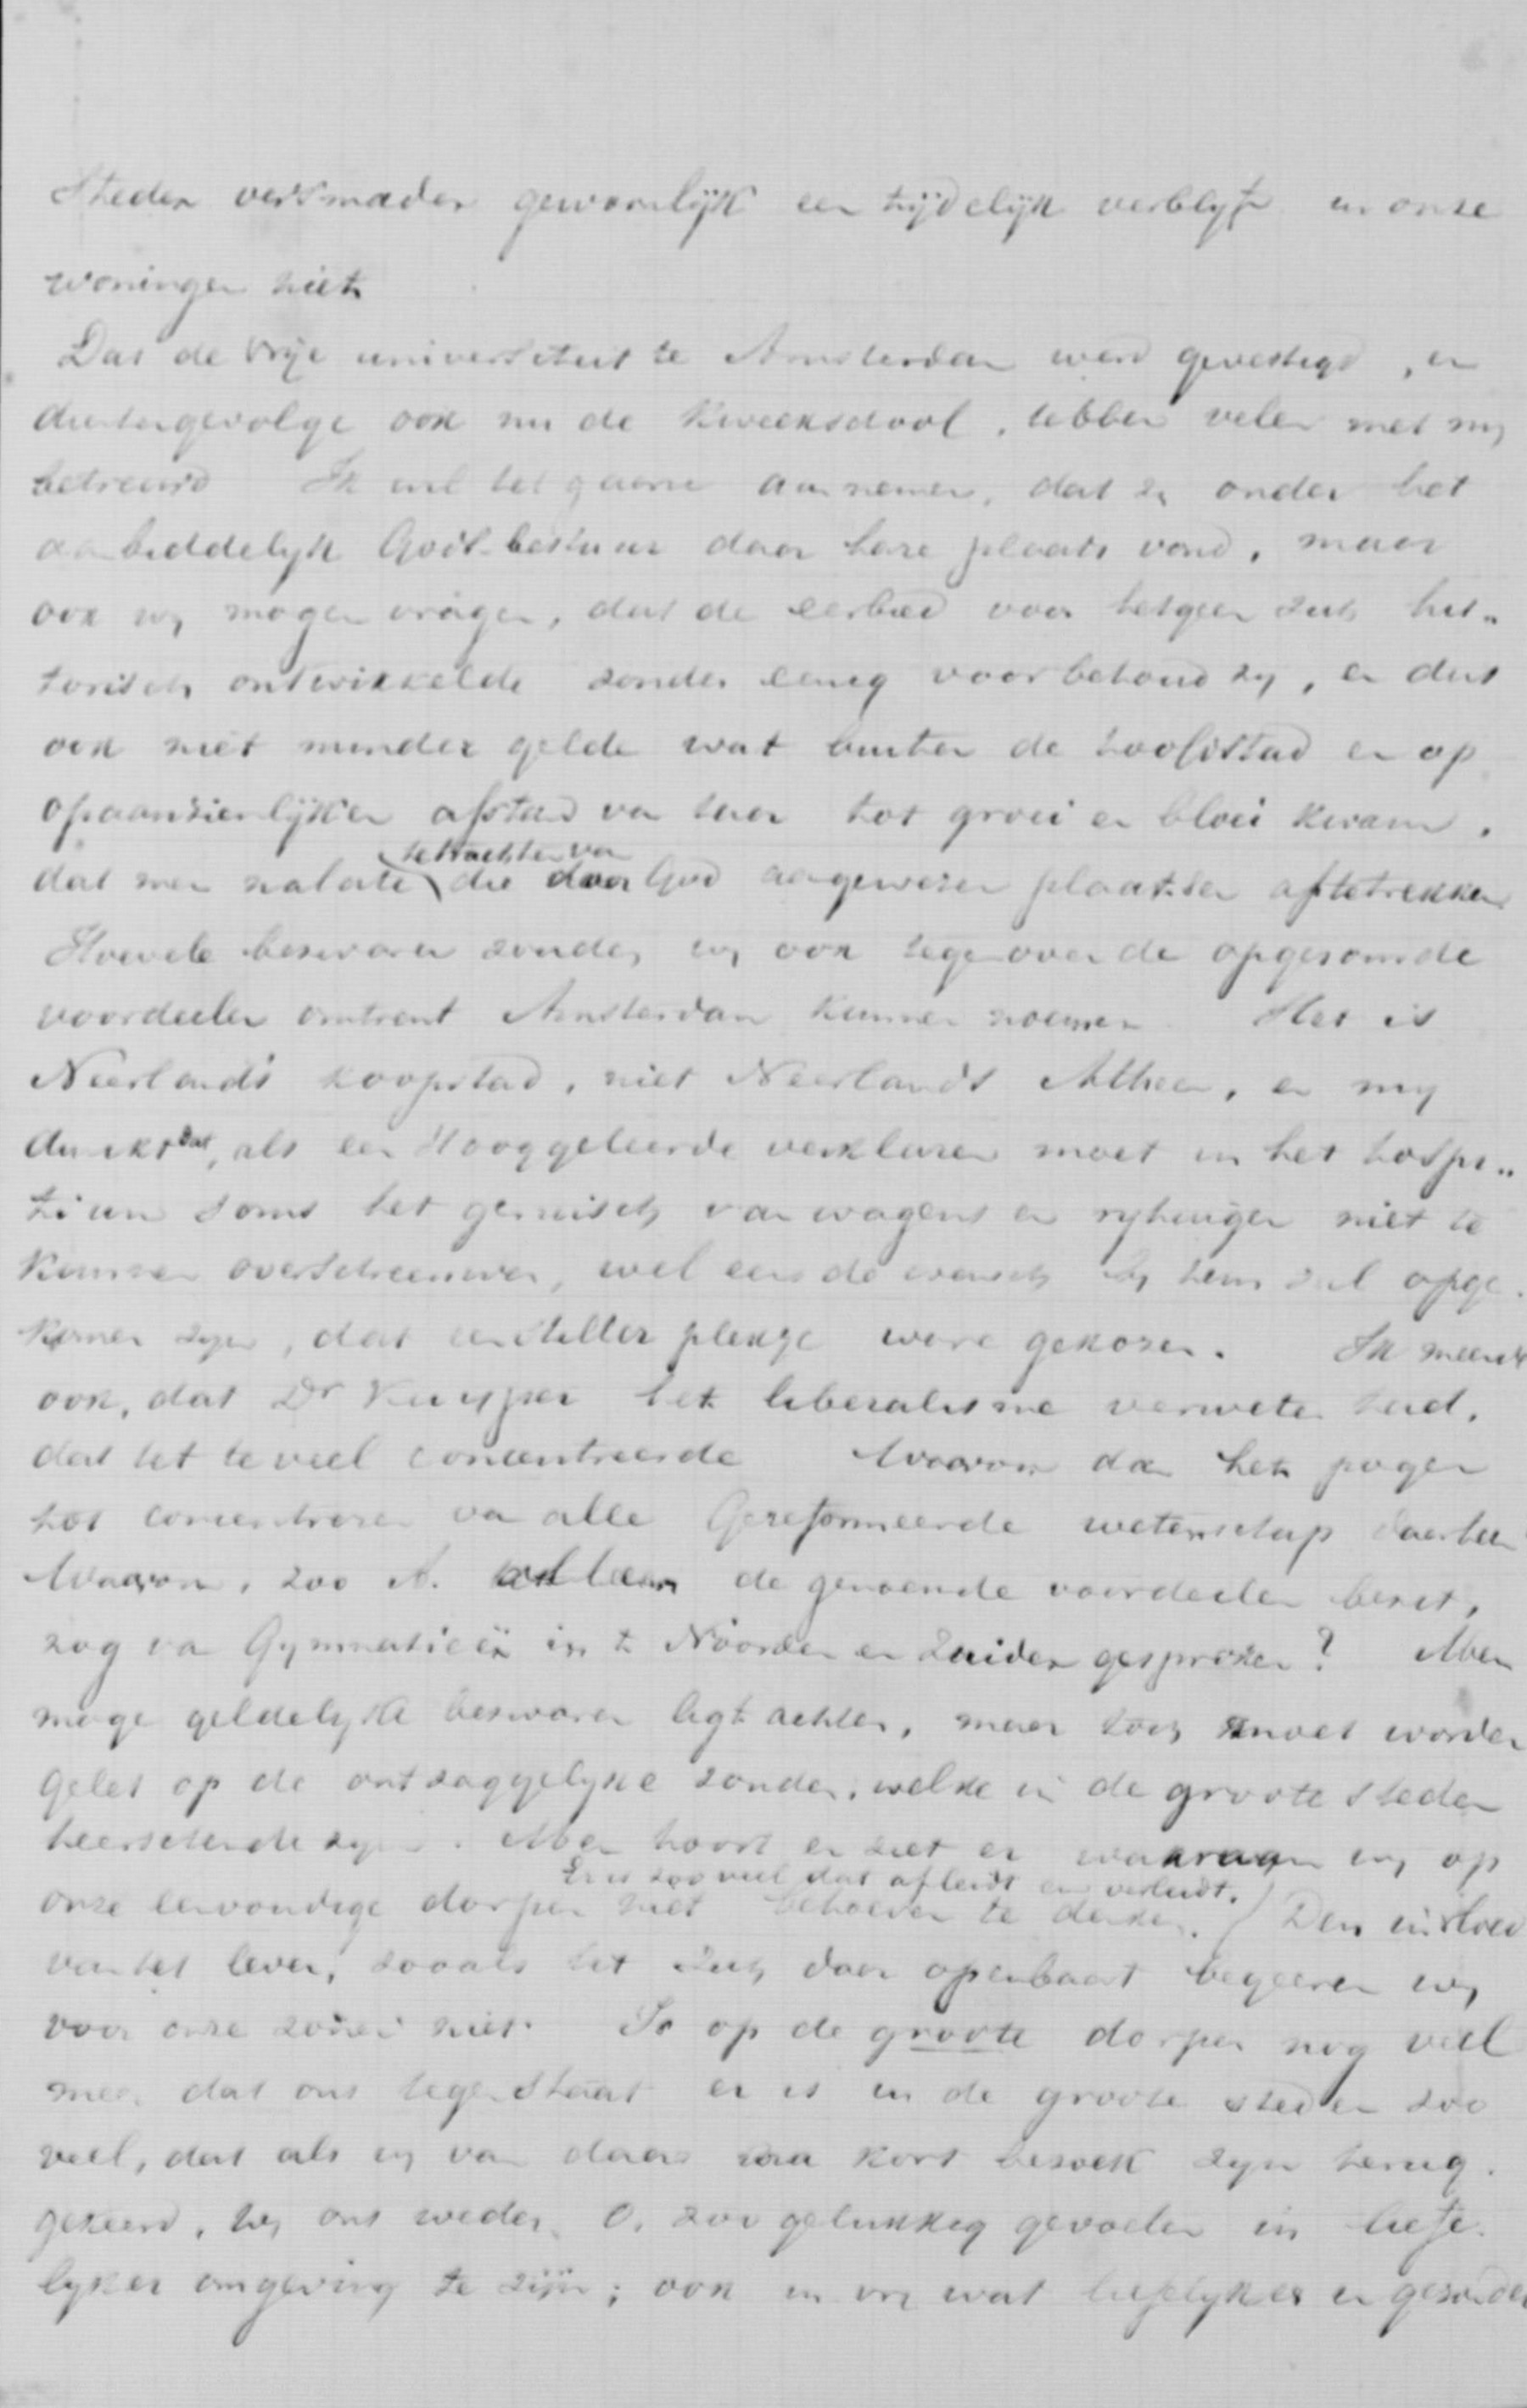 Steden versmaden gewoonlijk een tijdelijk verblijf in onze
woningen niet
Dat de vrije universiteit te Amsterdam werd gevestigd, en
dientengevolge ook nu de Kweekschool, hebben velen met mij
betreurd Ik wil het gaarne aannemen, dat zij onder het
aanbiddelijk Godsbestuur daar hare plaats vond, maar
ook wij mogen vragen, dat de eerbied voor hetgeen zich his-
torisch ontwikkelde zonder eenig voorbehoud zij, en dus
ook niet minder gelde wat buiten de hoofdstad en op
opaanzienlijken afstand van haar tot groei en bloei kwam,
dat men nalate te trachten van die door God aangewezen plaatsen aftetrekken
Hoevele bezwaren zouden wij ook tegenover de opgesomde
voordeelen omtrent Amsterdam kunnen noemen Het is
Neerlands koopstad, niet Neerlands Atheen, en mij
dunkt dat, als een Hooggeleerde verklaren moet in het hospi-
tium soms het geruisch van wagens en rijtuigen niet te
kunnen overschreeuwen, wel eens de wensch bij hem zal opge-
komen zijn, dat een stiller plekje ware gekozen. Ik meende
ook, dat Dr Kuyper het liberalisme verweten had,
dat het te veel concentreerde Waarom dan het pogen
tot concentreren van alle Gereformeerde wetenschap daarheen
Waarom, zoo A. alleen de genoemde voordeelen bezit,
nog van Gymnasieën in 't Noorden en Zuiden gesproken? Men
moge geldelijke bezwaren ligt achten, maar toch moet worden
gelet op de ontzaggelijke zonden, welke in de groote steden
heerschende zijn. Men hoort en ziet er waaraan wij op
onze eenvoudige dorpen niet behoeven te denken. Er is zoo veel dat afleidt en verleidt. Den invloed
van het leven, zooals het zich daar openbaart begeeren wij
voor onze zonen niet. Is op de groote dorpen nog veel
meer dat ons tegenstaat er is in de groote steden zoo
veel, dat als wij van daar na kort bezoek zijn terug-
gekeerd, wij ons weder, O, zoo gelukkig gevoelen in liefe-
lijker omgeving te zijn; ook in vrij wat liefelijker en gezonder